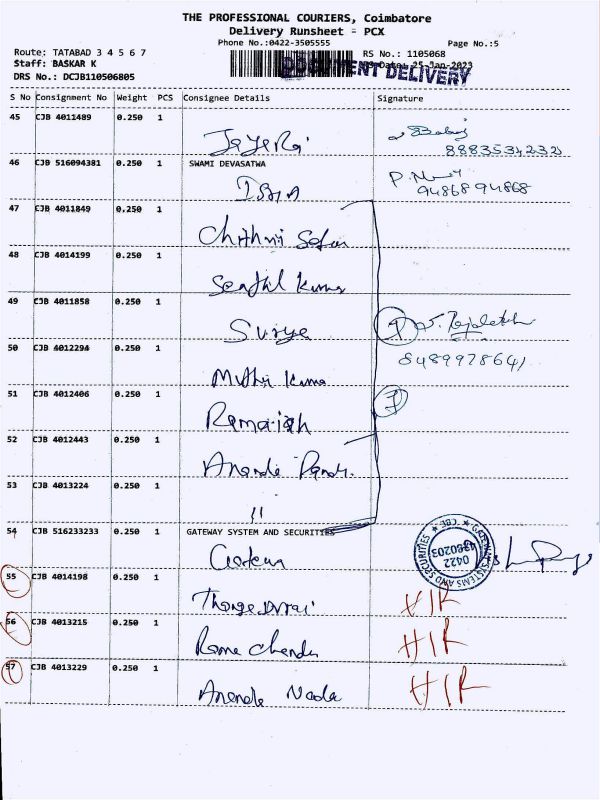 THE PROFESSIONAL COURIERS, Coimbatore
Delivery Runsheet - PCX
Phone No.:0422-3505555
Page No.:5
Route: TATABAD 3 4 5 6 7
RS No.: 1105068
Staff: BASKAR K
25-Jan-2023
DOCUMENT DELIVERY
DRS No.: DCJB110506805
S No Consignment No Weight PCS Consignee Details Signature
45 CJB 4011489 0.250 1
8883534232
46 CJB 516094381 0.250 1 SWAMI DEVASATWA
9486894868
47 CJB 4011849 0.250 1
48 CJB 4014199 0.250 1
Senthil Kumar
49 CJB 4011858 0.250 1
Surya
50 CJB 4012294 0.250 1
8489978641
Muthu Kumar
51 CJB 4012406 0.250 1
7
Ramaiah
52 CJB 4012443 0.250 1
53 CJB 4013224 0.250 1
"
54 CJB 516233233 0.250 1 GATEWAY SYSTEM AND SECURITIES
GATEWAY SYSTEMS AND SECURITIES ★ CBE ★
0422
4380203
55 CJB 4014198 0.250 1
56 CJB 4013215 0.250 1
Rama Chandra
57 CJB 4013229 0.250 1